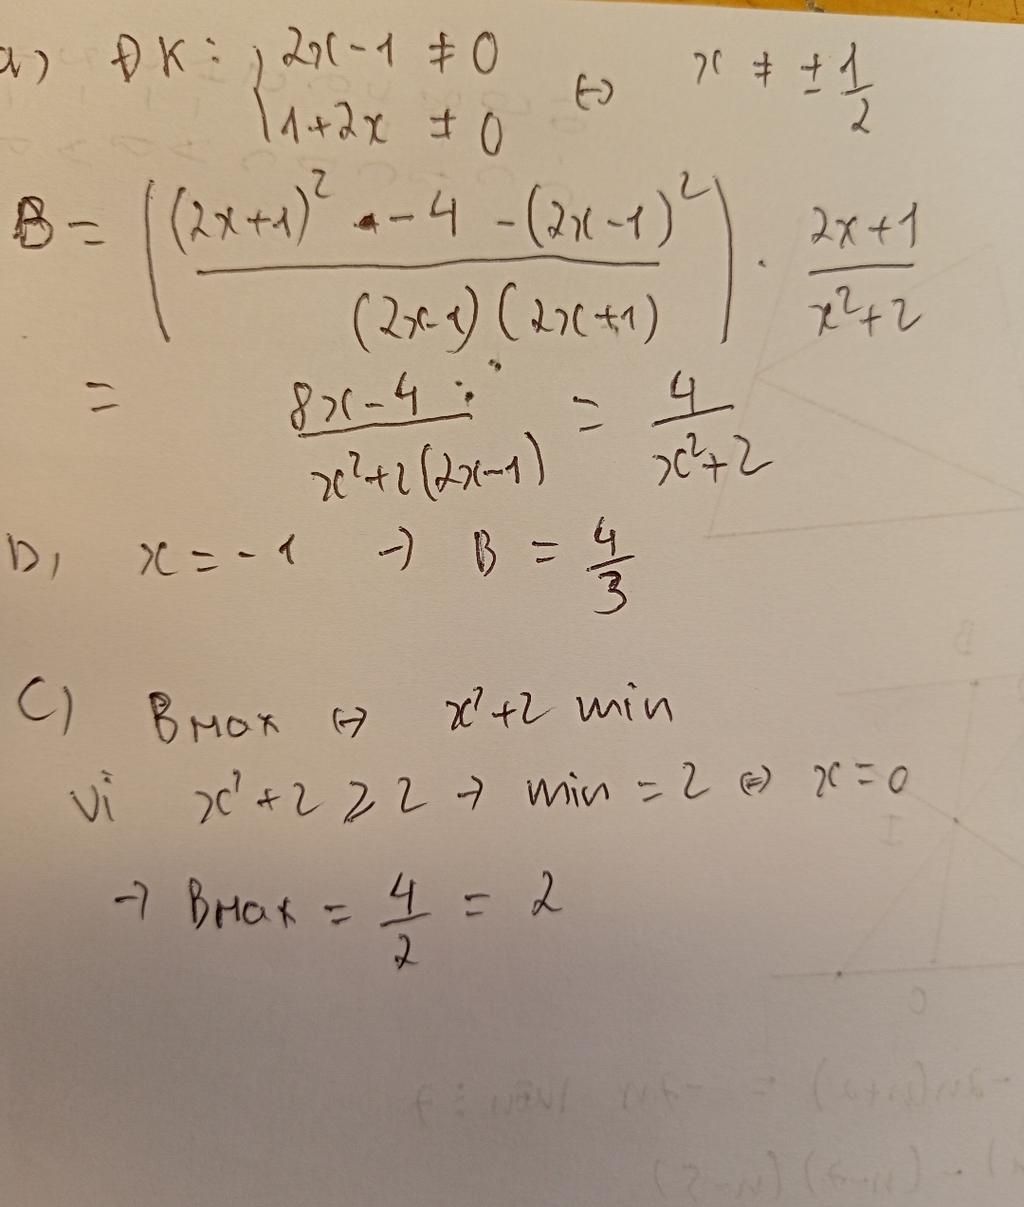 a) ĐK: { 2x-1 ≠ 0
1+2x ≠ 0 ⇔ x ≠ ± 1/2
B = ( ((2x+1)² - 4 - (2x-1)²) / ((2x-1)(2x+1)) ) . (2x+1)/(x²+2)
= (8x-4)/(x²+2(2x-1)) = 4/(x²+2)
b, x = -1 → B = 4/3
C) BMax ⇔ x²+2 min
Vì x²+2 ≥ 2 → min = 2 ⇔ x = 0
→ BMax = 4/2 = 2